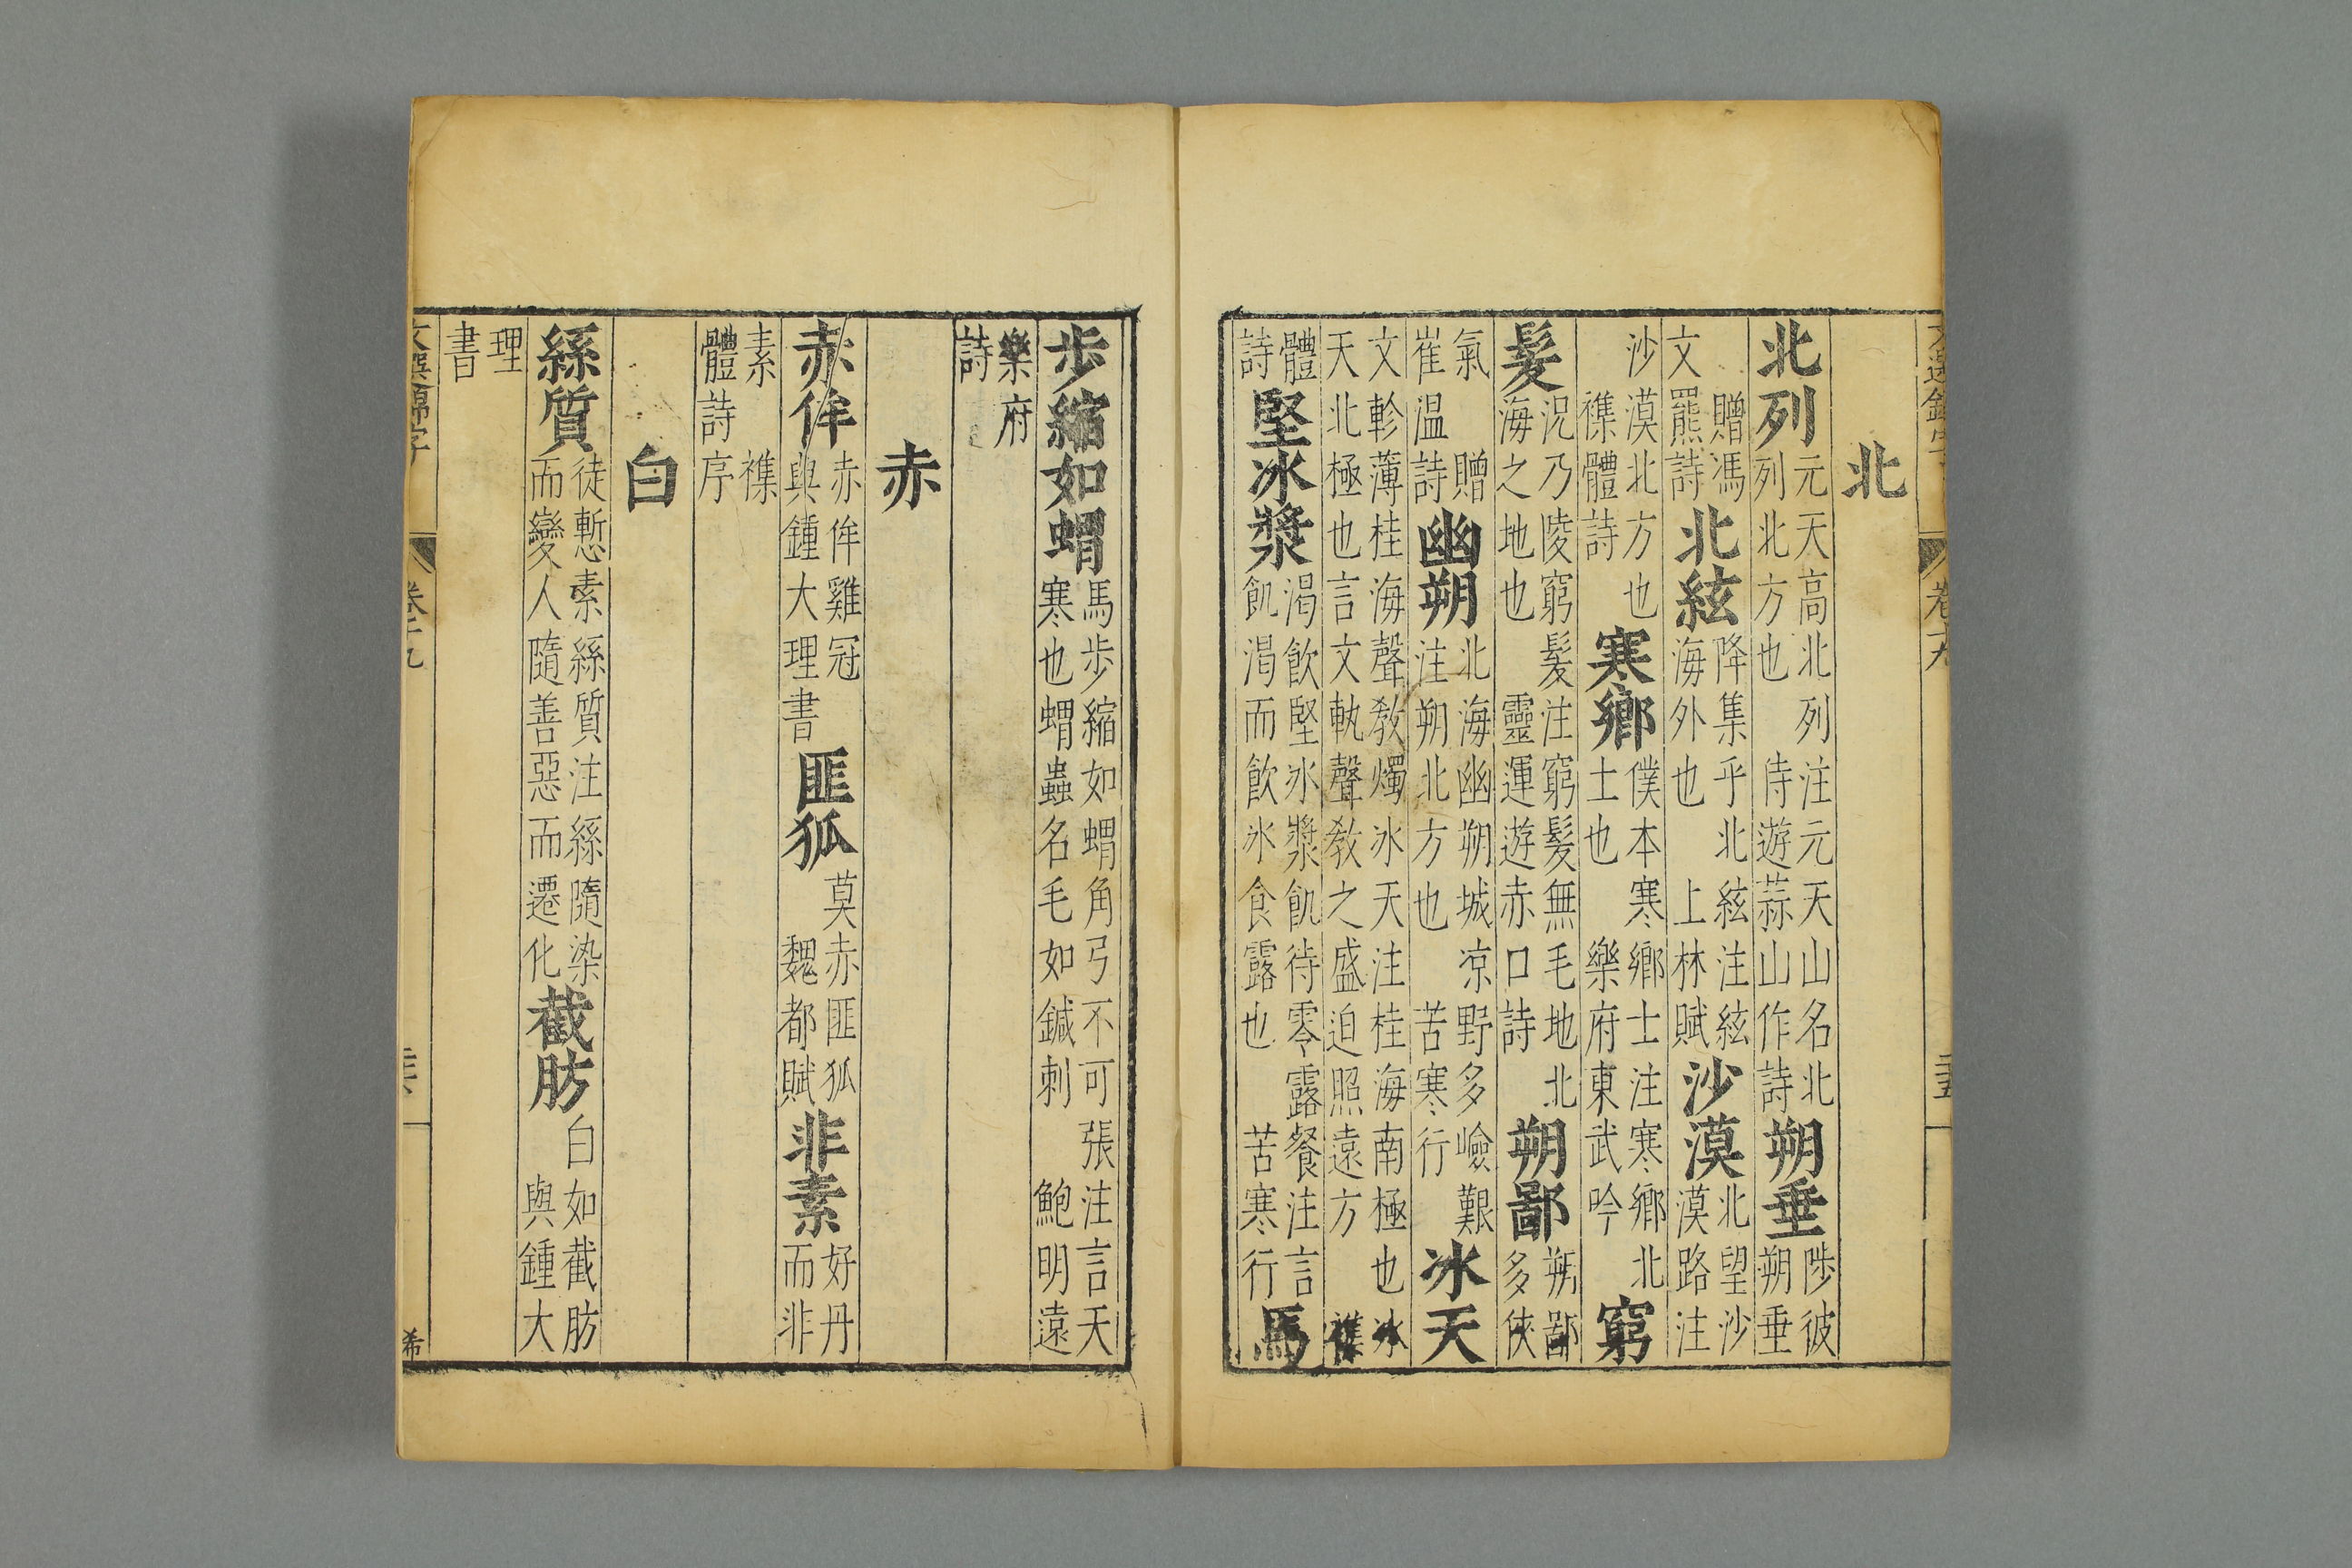 文選錦字 卷十九 三十五
北
北列元天高北列注元天山名北列北方也侍遊蒜山作詩朔垂陟彼朔垂
贈馮文羆詩北絃降集乎北絃注絃海外也上林賦沙漠北望沙漠路注
沙漠北方也襍體詩寒鄉僕本寒鄉士注寒鄉北士也樂府東武吟窮
髮況乃陵窮髮注窮髮無毛地北海之地也靈運遊赤口詩朔鄙朔鄙多俠
氣贈崔温詩幽朔北海幽朔城凉野多嶮艱注朔北方也苦寒行冰天
文軫薄桂海聲教燭冰天注桂海南極也冰天北極也言文軌聲教之盛迫照遠方襍
體詩堅冰漿渴飲堅冰漿飢待零露餐注言飢渴而飲冰食露也苦寒行馬
步縮如蝟馬步縮如蝟角弓不可張注言天寒也蝟蟲名毛如鍼刺鮑明遠
樂府詩
赤
赤侔赤侔雞冠與鍾大理書匪狐莫赤匪狐魏都賦非素好丹而非
素襍體詩序
白
絲質徒慙素絲質注絲隨染而變人隨善惡而遷化截肪白如截肪與鍾大
理書
文選錦字 卷十九 三十六 希